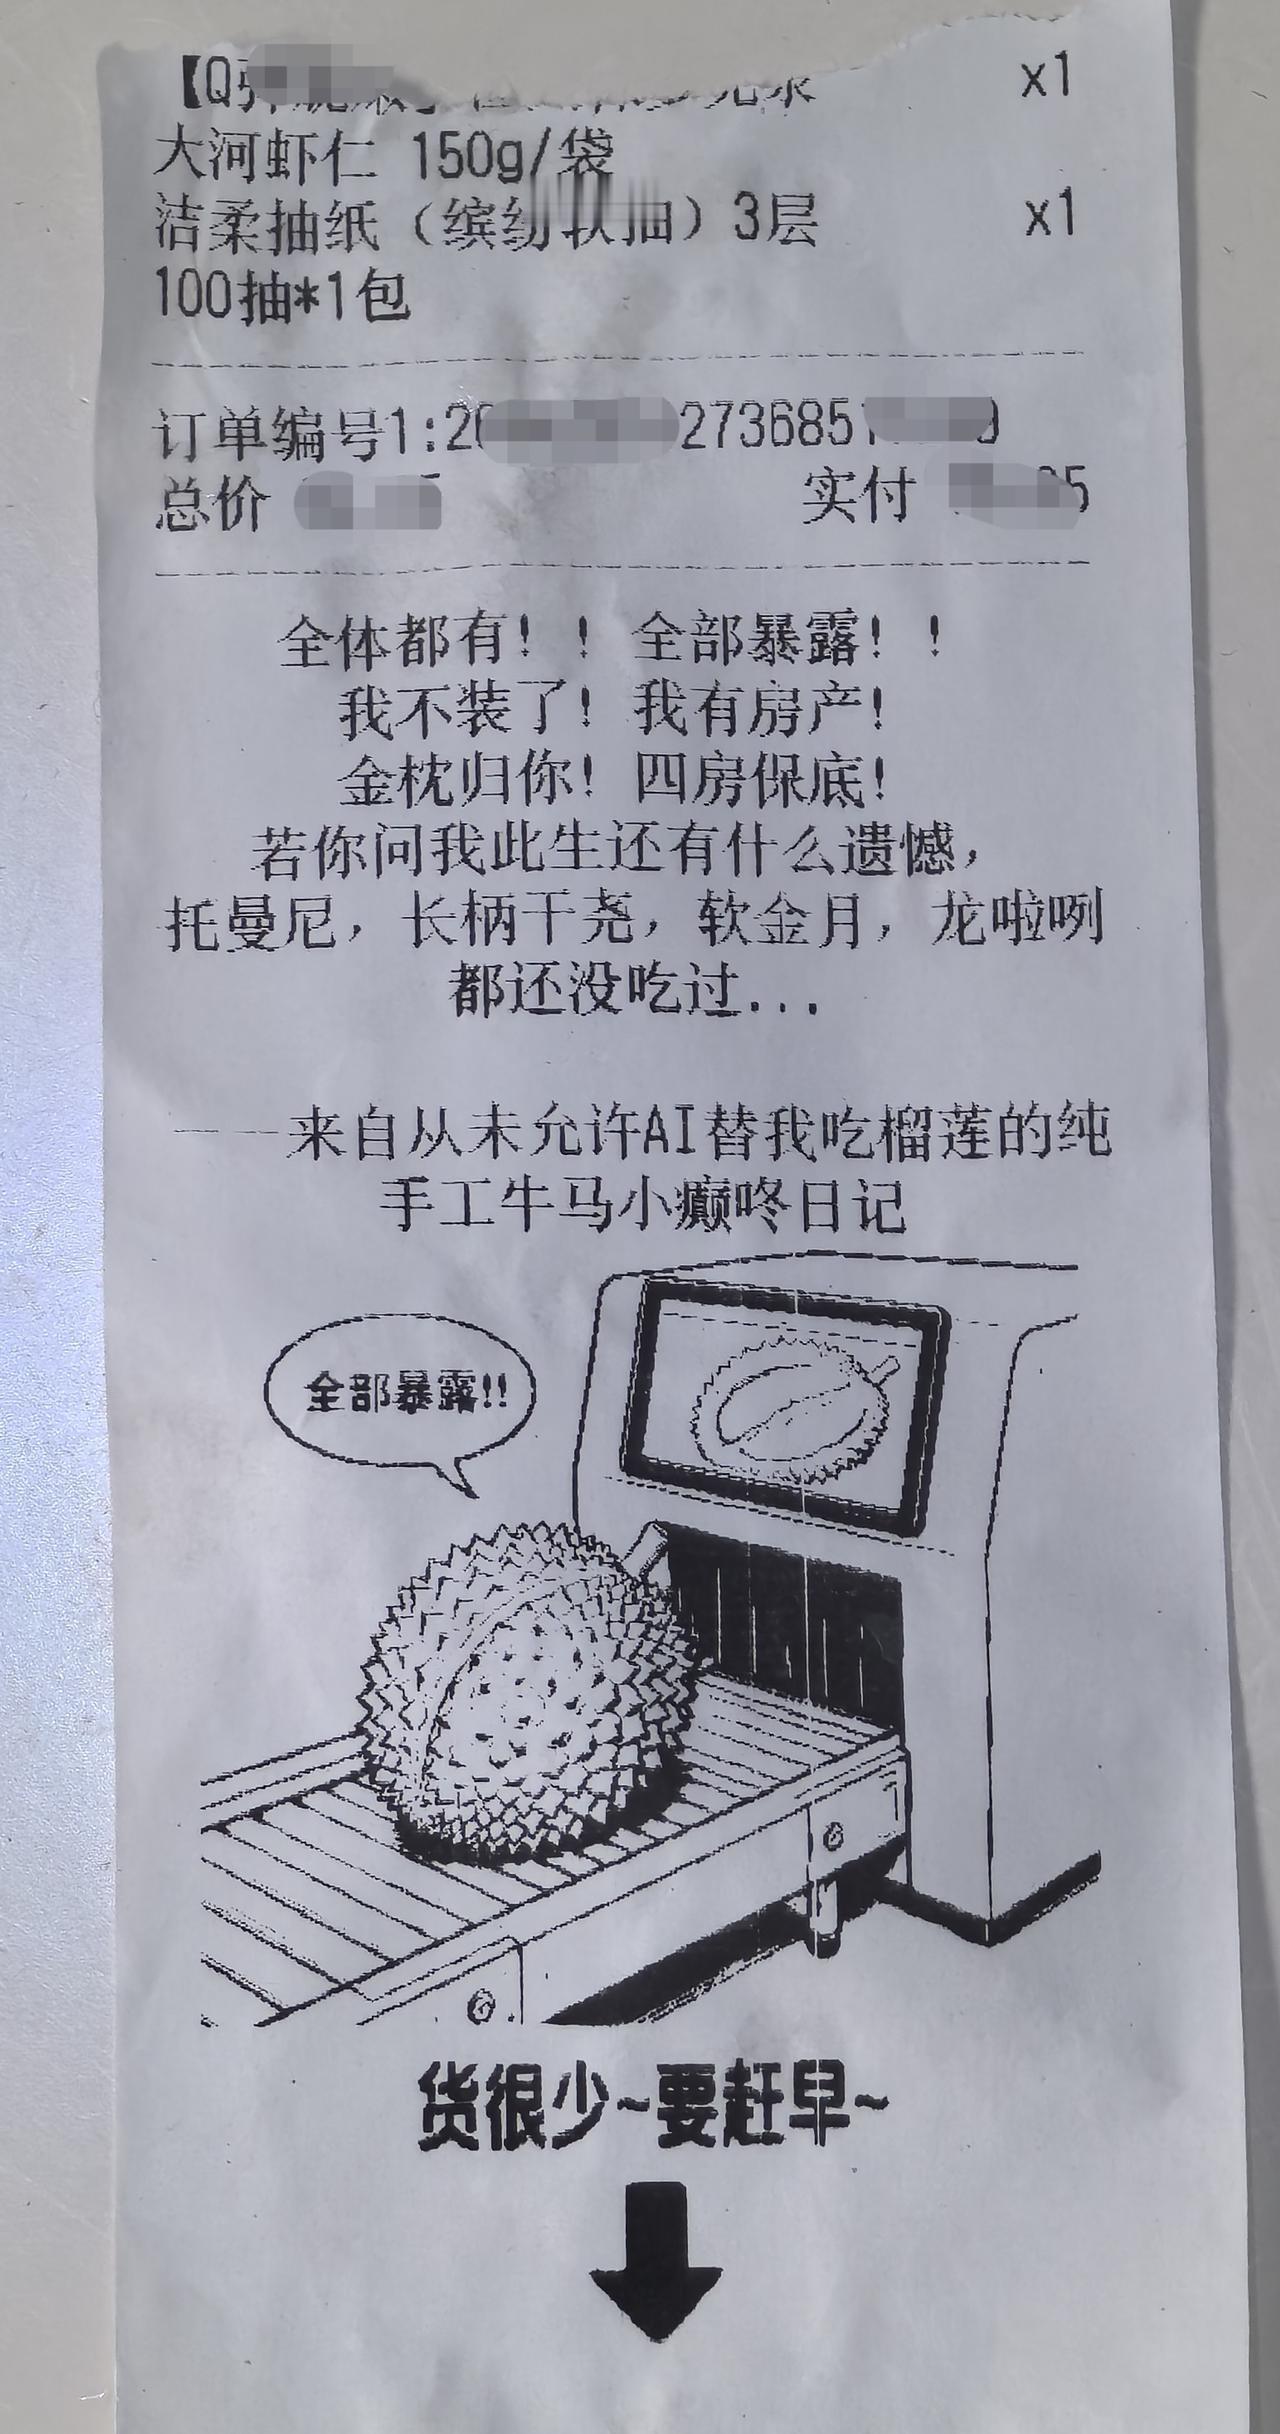 【Q x1
大河虾仁 150g/袋
洁柔抽纸（缤纷软抽）3层 x1
100抽*1包
订单编号1:2 2736851
总价 实付 5
全体都有！！全部暴露！！
我不装了！我有房产！
金枕归你！四房保底！
若你问我此生还有什么遗憾，
托曼尼，长柄干尧，软金月，龙啦咧
都还没吃过...
——来自从未允许AI替我吃榴莲的纯
手工牛马小癫咚日记
全部暴露!!
货很少~要赶早~